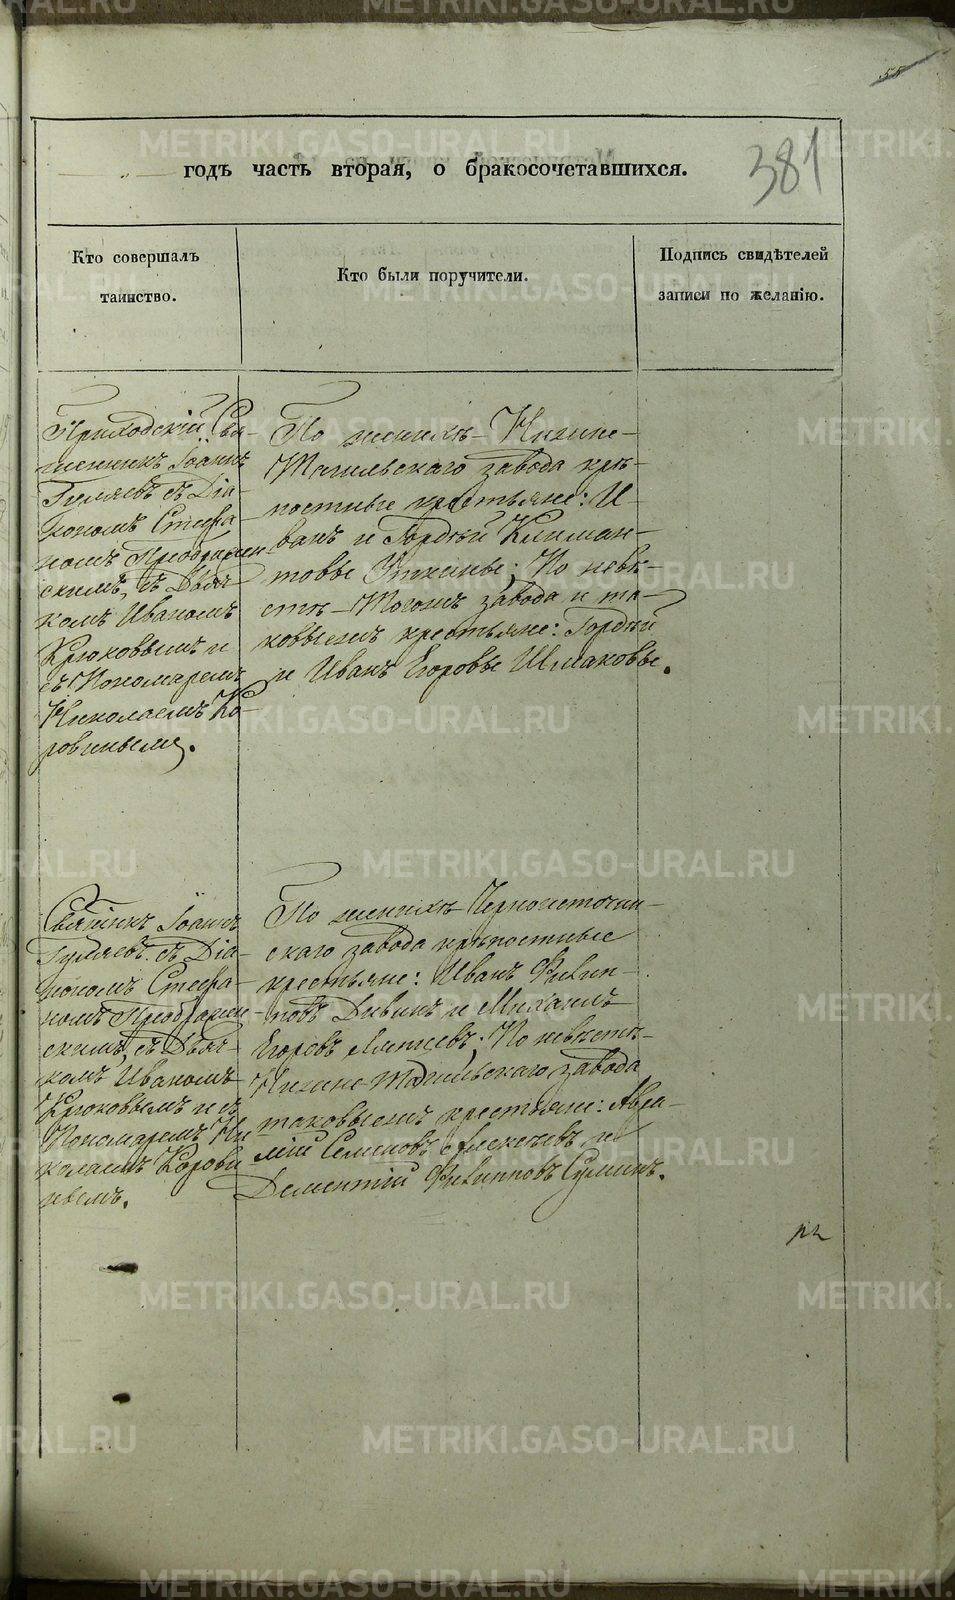 55
381
годъ часть вторая, о бракосочетавшихся.
Кто совершалъ
таинство.
Кто были поручители.
Подпись свидѣтелей
записи по желанію.
Приходскій Свя-
щенникъ Іоаннъ
Гуляевъ съ Діа-
кономъ Стефа-
номъ Преображен-
скимъ, съ Дьяч-
комъ Иваномъ
Крюковымъ и
съ Пономаремъ
Николаемъ Ко-
ровинымъ.
По женихѣ - Нижне-
Тагильскаго завода крѣ-
постные крестьяне: И-
ванъ и Гордѣй Климан-
товы Уткины; По невѣ-
стѣ - Тогожъ завода и та-
ковыежъ крестьяне: Гордѣй
и Иванъ Егоровы Шмаковы.
Священникъ Іоаннъ
Гуляевъ съ Діа-
кономъ Стефа-
номъ Преображен-
скимъ, съ Дьяч-
комъ Иваномъ
Крюковымъ и съ
Пономаремъ Ни-
колаемъ Корови-
нымъ.
По женихѣ Черноисточин-
скаго завода крѣпостные
крестьяне: Иванъ Филип-
повъ Дивинъ и Михаилъ
Егоровъ; По невѣстѣ-
Нижне Тагильскаго завода
таковыежъ крестьяне: Авра-
мій Семеновъ Алексѣевъ и
Дементій Филипповъ Суминъ.
METRIKI.GASO-URAL.RU